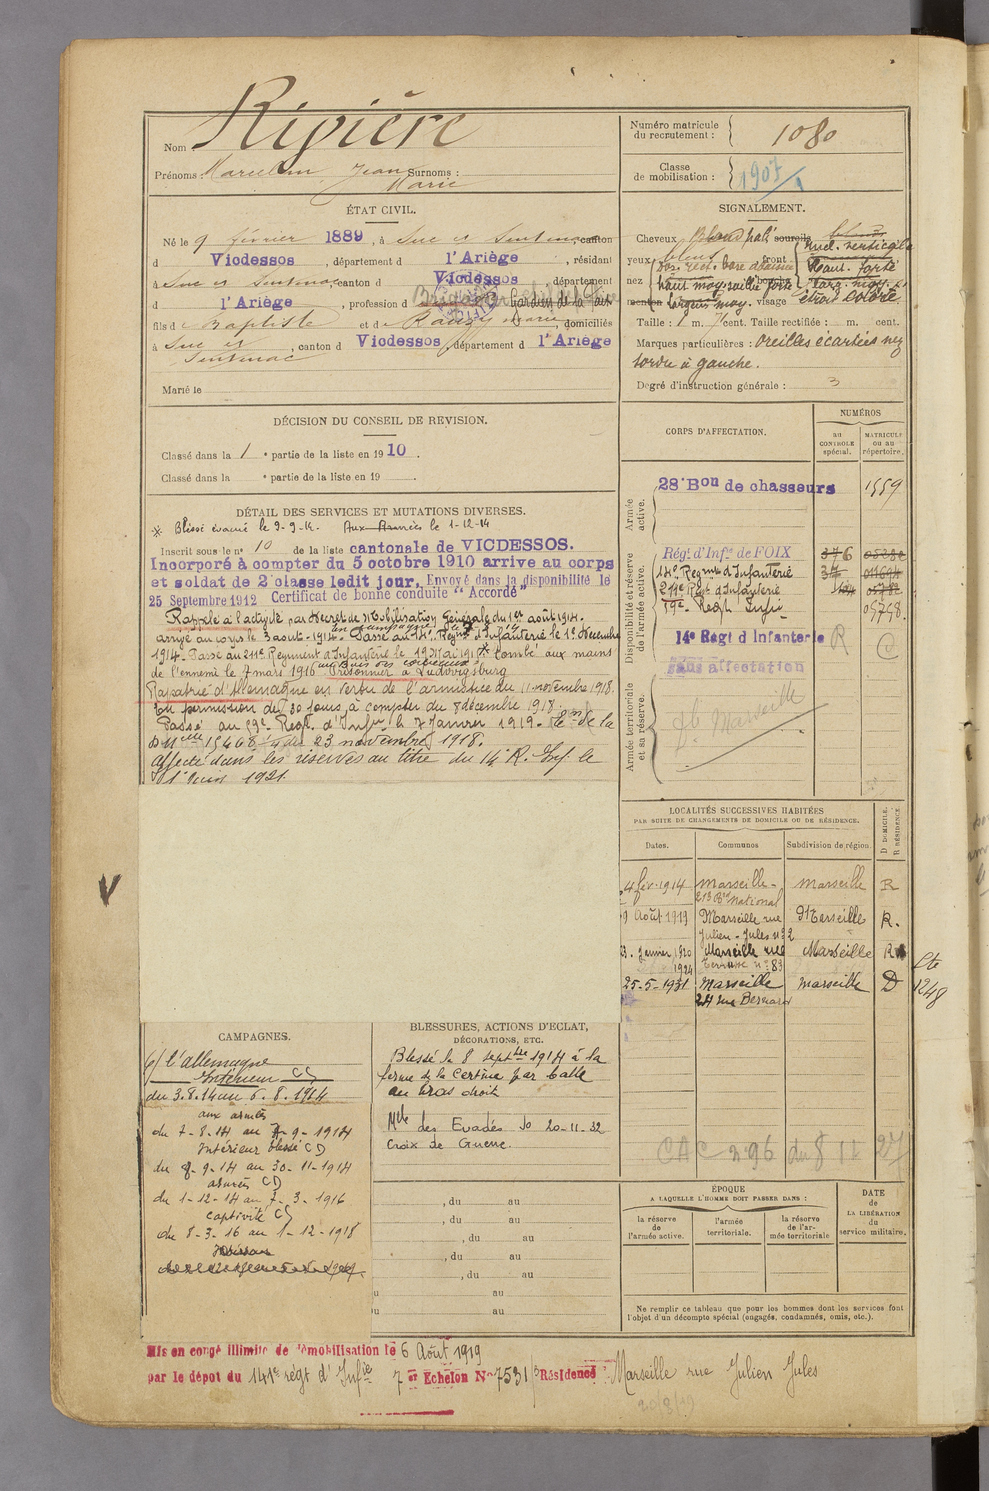 Nom Rivière
Prénoms : Marcelin Jean Surnoms :
Marie
ÉTAT CIVIL.
Né le 9 février 1889, à Suc et Sentenac canton
d Vicdessos, département d l'Ariège, résidant
à Suc et Sentenac canton d Vicdessos département
d l'Ariège, profession d Gardien de la paix
fils d e Baptiste et de Rauzy Marie, domiciliés
à Suc et, canton d Vicdessos, département d l'Ariège
Sentenac
Marié le
DÉCISION DU CONSEIL DE REVISION.
Classé dans la 1 e partie de la liste en 1910.
Classé dans la e partie de la liste en 19 .
DÉTAIL DES SERVICES ET MUTATIONS DIVERSES.
* Blessé évacué le 9-9-14. Aux Armées le 1-12-14
Inscrit sous le n° 10 de la liste cantonale de VICDESSOS.
Incorporé à compter du 5 octobre 1910 arrive au corps
et soldat de 2e classe ledit jour. Envoyé dans la disponibilité le
25 Septembre 1912 Certificat de bonne conduite "Accordé"
Rappelé à l'activité par décret de Mobilisation Générale du 1er août 1914.
En campagne le 7 14
arrivé au corps le 3 août 1914. Passé au 14e Régmt d'Infanterie le 1er Décembre
1914. Passé au 211e Régiment d'Infanterie le 19 Mai 1915 * Tombé aux mains
au Bois des corbeaux
de l'ennemi le 7 mars 1916 Prisonnier à Ludwigsburg
Rapatrié d'Allemagne en vertu de l'armistice du 11 novembre 1918.
En permission de 30 jours à compter du 8 décembre 1918.
Passé au 59e Regt. d'Infie le 7 Janvier 1919. de la
Dmelle 15468 du 23 novembre 1918.
Affecté dans les réserves au titre du 14e R. Inf. le
1er Juin 1921
CAMPAGNES.
c/ l'allemagne
Intérieur CS
du 3.8.14 au 6.8.1914
aux armées
du 7-8-14 au 7-9-1914
Intérieur blessé CD
du 8-9-14 au 30-11-1914
armées CD
du 1-12-14 au 7-3-1916
captivité CS
du 8-3-16 au 1-12-1918
BLESSURES, ACTIONS D'ÉCLAT,
DÉCORATIONS, ETC.
Blessé le 8 septbre 1914 à la
ferme de la Certine par balle
au bras droit
Mlle des Evadés Jo 20-11-32
Croix de Guerre.
, du au
, du au
, du au
, du au
, du au
u au
u au
Mis en congé illimité de démobilisation le 6 Août 1919
par le dépôt du 141e régt d'Infie 7 er Echelon No 7531/3 Résidence Marseille rue Julien Jules
20/8/19
Numéro matricule
du recrutement : 1080
Classe
de mobilisation : 1907/1
SIGNALEMENT.
Cheveux Blond pâle sourcils
yeux bleus front
nez dos rect. base abaissée
haut moy. saillie forte bouche
menton largeur moy. visage étroit coloré
Taille : 1 m. 7 cent. Taille rectifiée : m. cent.
Marques particulières : oreilles écartées nez
tordu à gauche.
Degré d'instruction générale : 3
CORPS D'AFFECTATION.
NUMÉROS
au
CONTROLE
spécial.
MATRICULE
ou au
répertoire.
Armée
active.
28e Bon de chasseurs 1559
Disponibilité et réserve
de l'armée active.
Régt. d'Infie de FOIX 376
14e Regmt d'Infanterie
211e Régt d'Infanterie
59e Regt Infie
14e Régt d'Infanterie R C
Sans affectation
Armée territoriale
et sa réserve.
Marseille
LOCALITÉS SUCCESSIVES HABITÉES
PAR SUITE DE CHANGEMENTS DE DOMICILE OU DE RÉSIDENCE.
Dates. Communes Subdivision de région. D DOMICILE. R RÉSIDENCE.
4 fév. 1914 Marseille - Marseille R
213 Bd National
9 Août 1919 Marseille rue Marseille R.
Julien-Jules n° 2
Janvier 1920 Marseille rue Marseille R
1924 Terrusse n° 83
25-5-1931 Marseille Marseille D
24 rue Bernard
Cte
1248
CAC n° 96 du 8 11 27
ÉPOQUE
A LAQUELLE L'HOMME DOIT PASSER DANS :
la réserve
de
l'armée active.
l'armée
territoriale.
la réserve
de l'ar-
mée territoriale
DATE
de
LA LIBÉRATION
du
service militaire.
Ne remplir ce tableau que pour les hommes dont les services font
l'objet d'un décompte spécial (engagés, condamnés, omis, etc.).